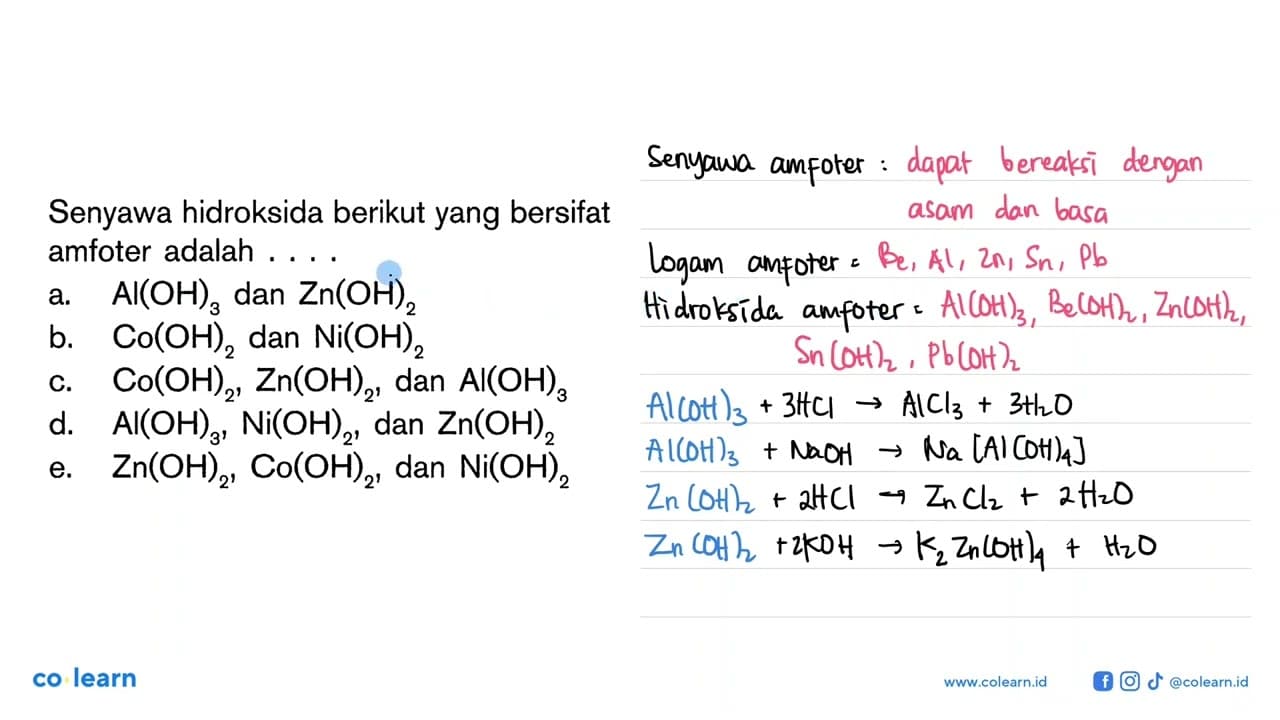 Senyawa hidroksida berikut yang bersifat
amfoter adalah . . . .
a. Al(OH)₃ dan Zn(OH)₂
b. Co(OH)₂ dan Ni(OH)₂
c. Co(OH)₂, Zn(OH)₂, dan Al(OH)₃
d. Al(OH)₃, Ni(OH)₂, dan Zn(OH)₂
e. Zn(OH)₂, Co(OH)₂, dan Ni(OH)₂
Senyawa amfoter : dapat bereaksi dengan
asam dan basa
Logam amfoter = Be, Al, Zn, Sn, Pb
Hidroksida amfoter = Al(OH)₃, Be(OH)₂, Zn(OH)₂,
Sn(OH)₂, Pb(OH)₂
Al(OH)₃ + 3HCl → AlCl₃ + 3H₂O
Al(OH)₃ + NaOH → Na[Al(OH)₄]
Zn(OH)₂ + 2HCl → ZnCl₂ + 2H₂O
Zn(OH)₂ + 2KOH → K₂Zn(OH)₄ + H₂O
co learn
www.colearn.id
@colearn.id